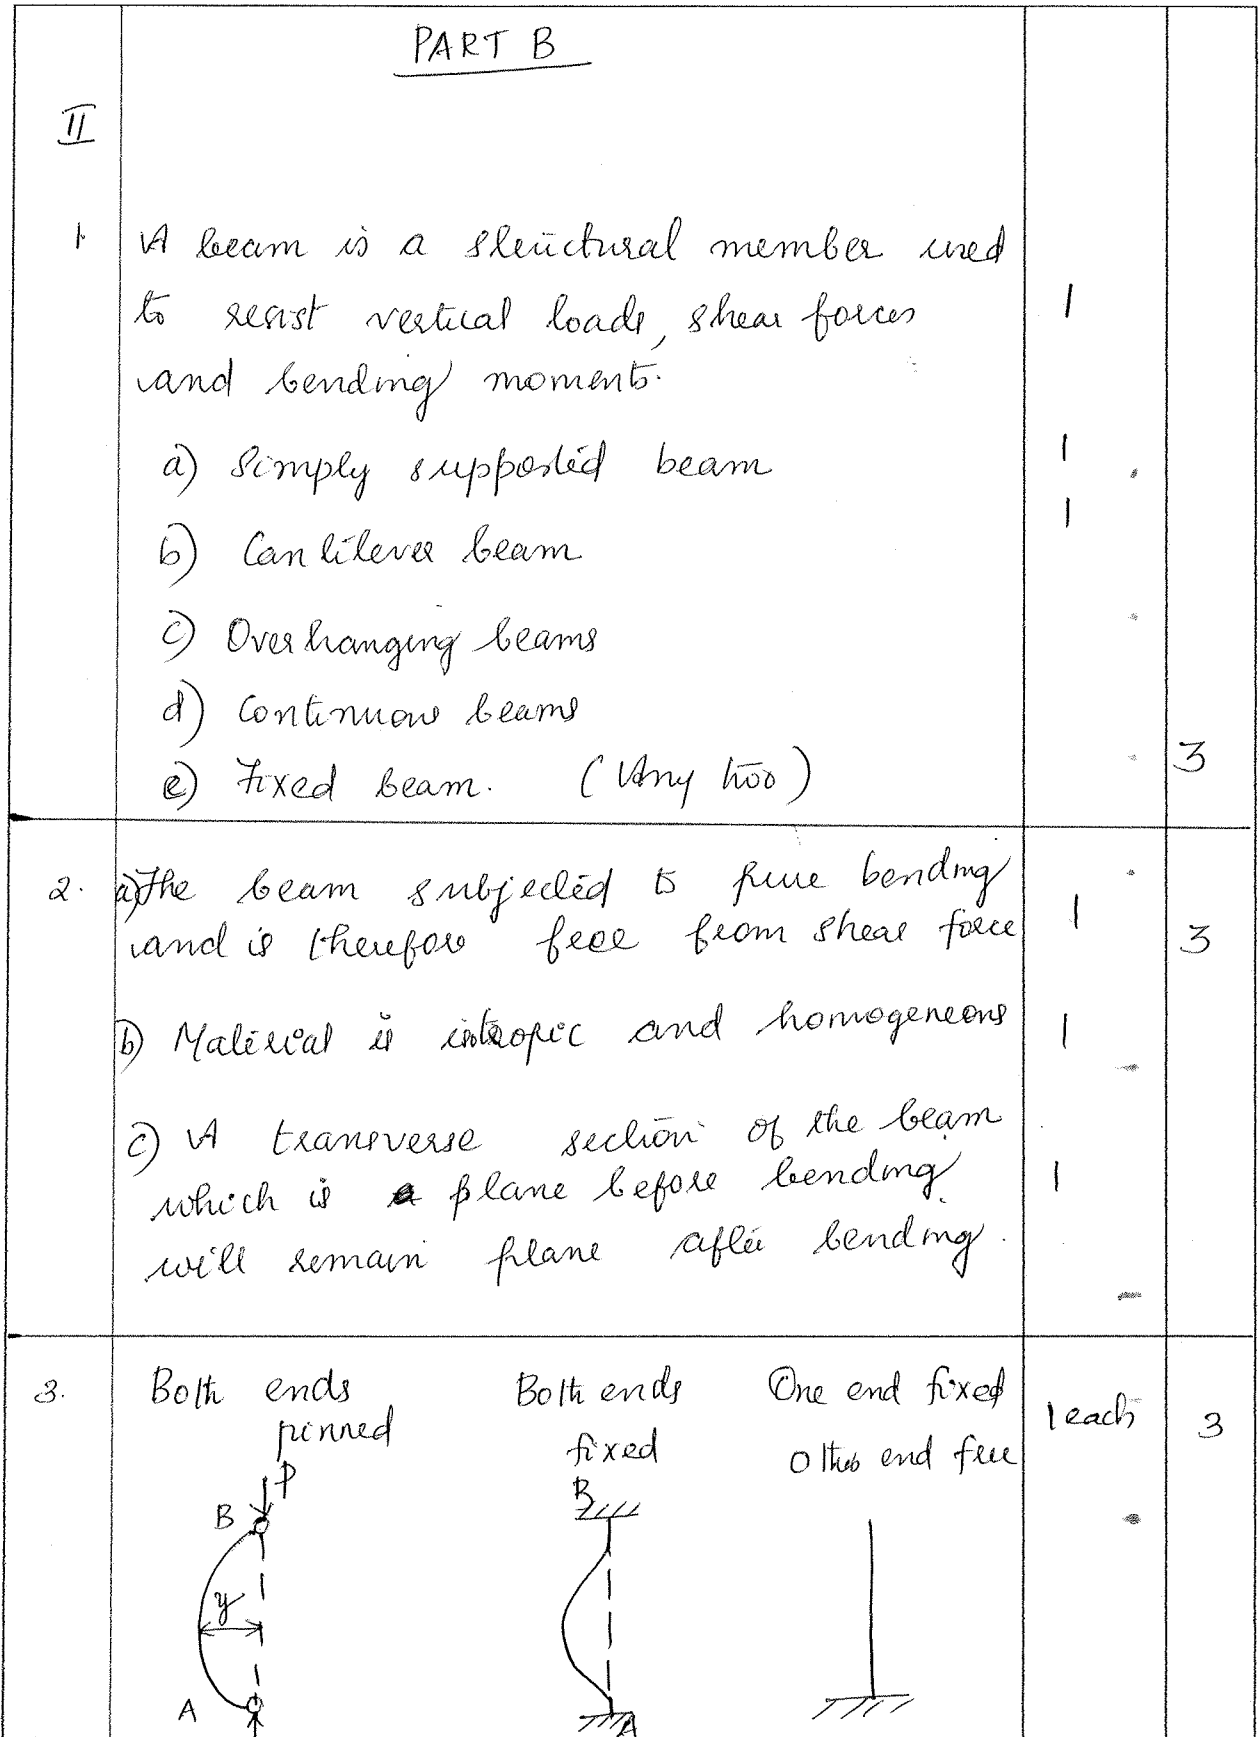 PART B
II
1 A beam is a structural member used
to resist vertical loads, shear forces 1
and bending moments.
a) Simply supported beam 1
1
b) Cantilever beam
c) Overhanging beams
d) Continuous beams
e) Fixed beam. (Any two) 3
2. a) The beam subjected to pure bending
and is therefore free from shear force 1 3
b) Material is isotropic and homogeneous 1
c) A transverse section of the beam
which is plane before bending 1
will remain plane after bending.
3. Both ends Both ends One end fixed 1 each 3
pinned fixed other end free
P
B B
y
A A